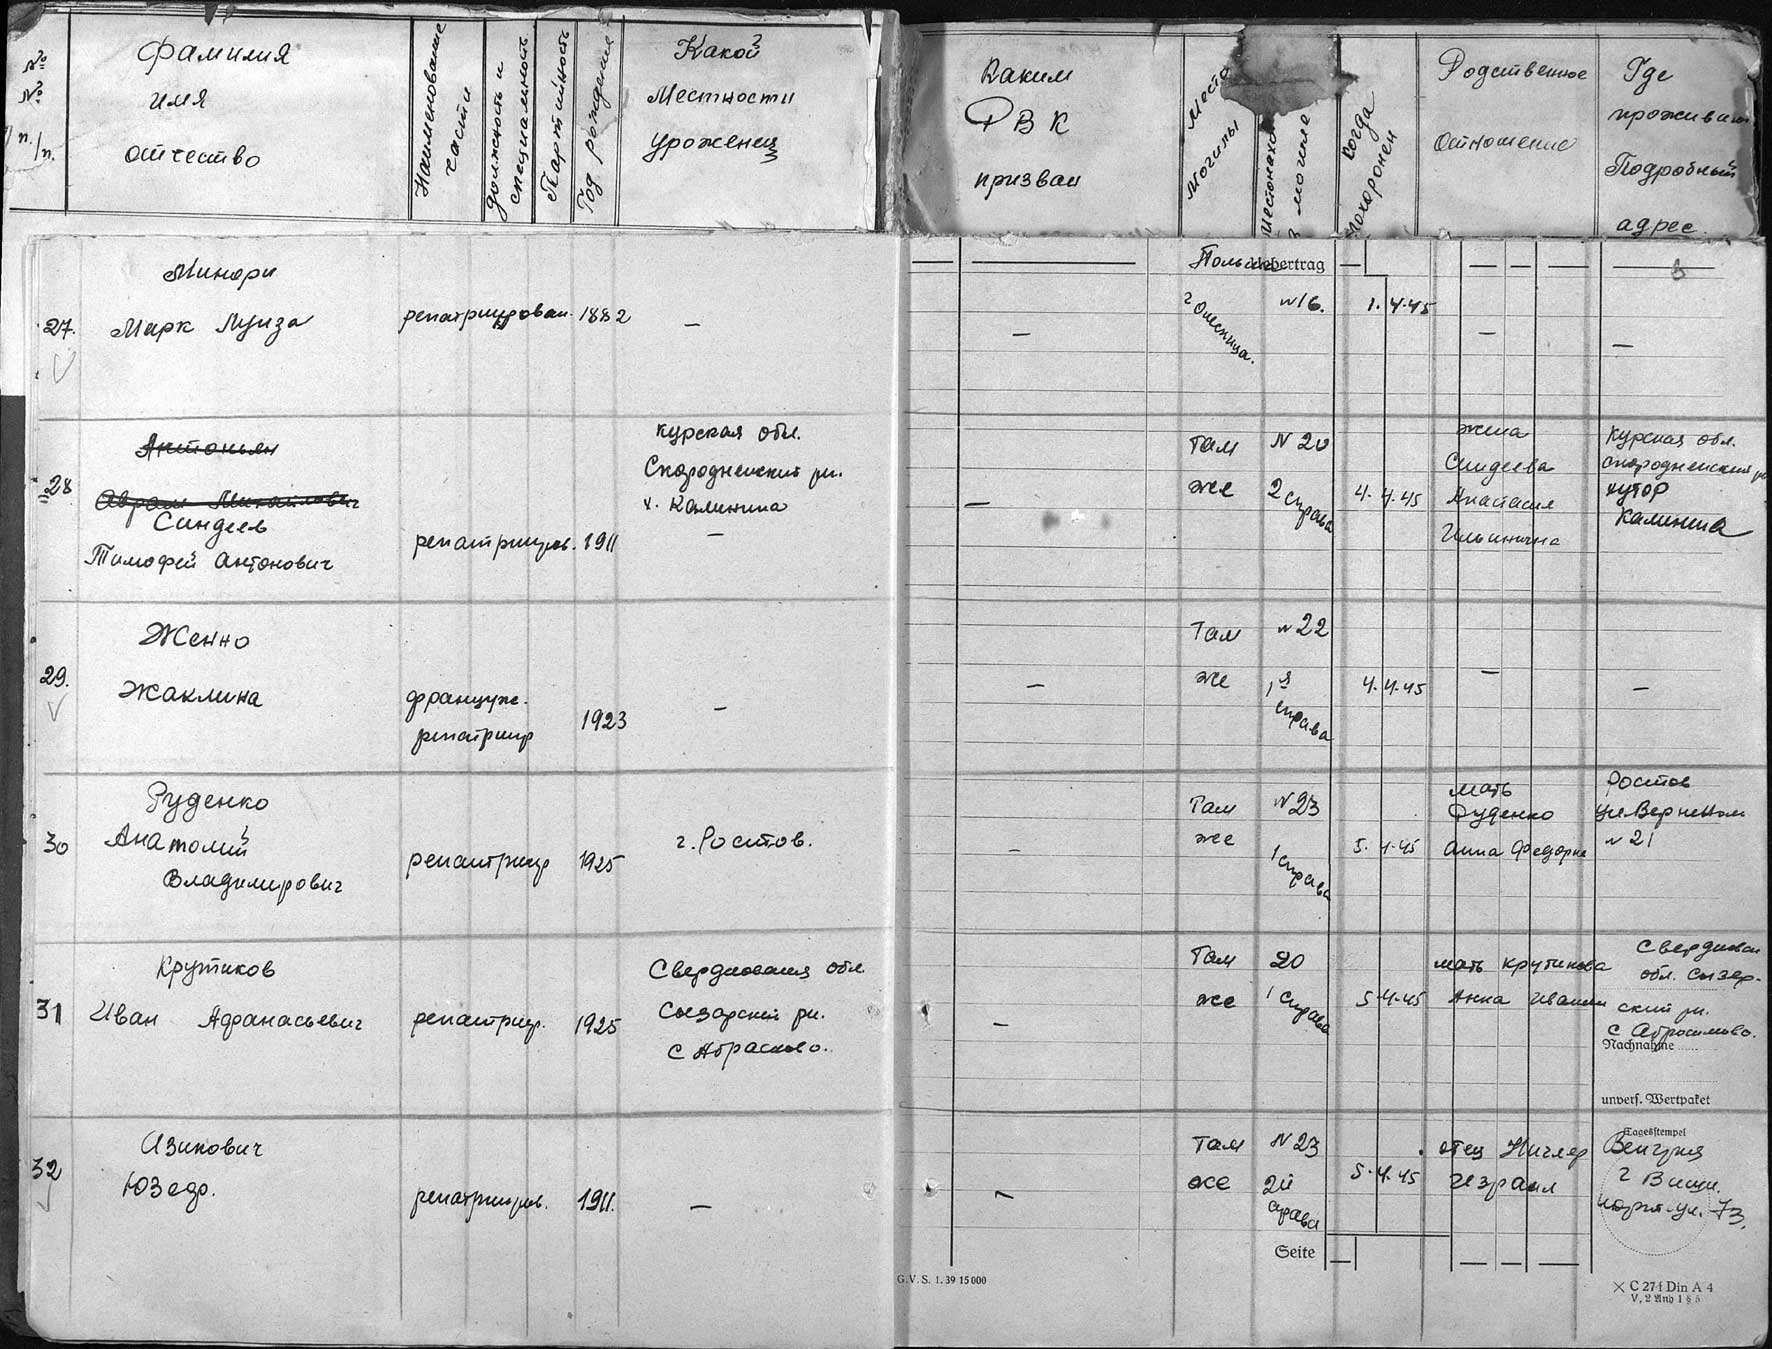 № № п./п.
Фамилия
имя
отчество
Наименование
части
должность и
специальность
Партийность
Год рождения
Какой
Местности
уроженец
Каким
РВК
призван
Место
Могилы
в могиле
когда
похоронен
Родственное
отношение
Где
проживает
Подробный
адрес
Uebertrag
27.
Минори
Марк Луиза
репатриирован.
1882
—
—
г Олесница.
№16.
1.4.45
—
—
28
Антоньян
Абрам Михайлович
Синдеев
Тимофей Антонович
репатрииров.
1911
Курская обл.
Скороднянский рн.
х. Калинина
—
—
Там
же
N 20
2 справа
4.4.45
жена
Синдеева
Анастасия
Ильинична
Курская обл.
хутор
Калинина
29.
Женно
Жаклина
француж.
репатриир
1923
—
—
Там
же
№22
1я
справа
4.4.45
—
—
30
Руденко
Анатолий
Владимирович
репатриир
1925
г. Ростов.
—
Там
же
№23
1 справа
5.4.45
мать
Руденко
Анна Федорна
Ростов
№21
31
Крутиков
Иван Афанасьевич
репатриир.
1925
Свердловская обл.
Сызарский рн.
с Абрасково.
—
Там
же
20
1 справа
5.4.45
мать Крутикова
Анна Иванна
Свердловск
обл. Сызер-
ский рн.
с Абросимово.
Nachnahme
unvers. Wertpaket
32
Изикович
Юзеф.
репатрииров.
1911.
—
—
Там
же
N 23
2й
справа
5.4.45
отец
Израил
Tagesstempel
Венгрия
ул. 73.
Seite
G.V.S. 1. 39 15 000
C 27f Din A 4
V, 2 Anh 1 § 5